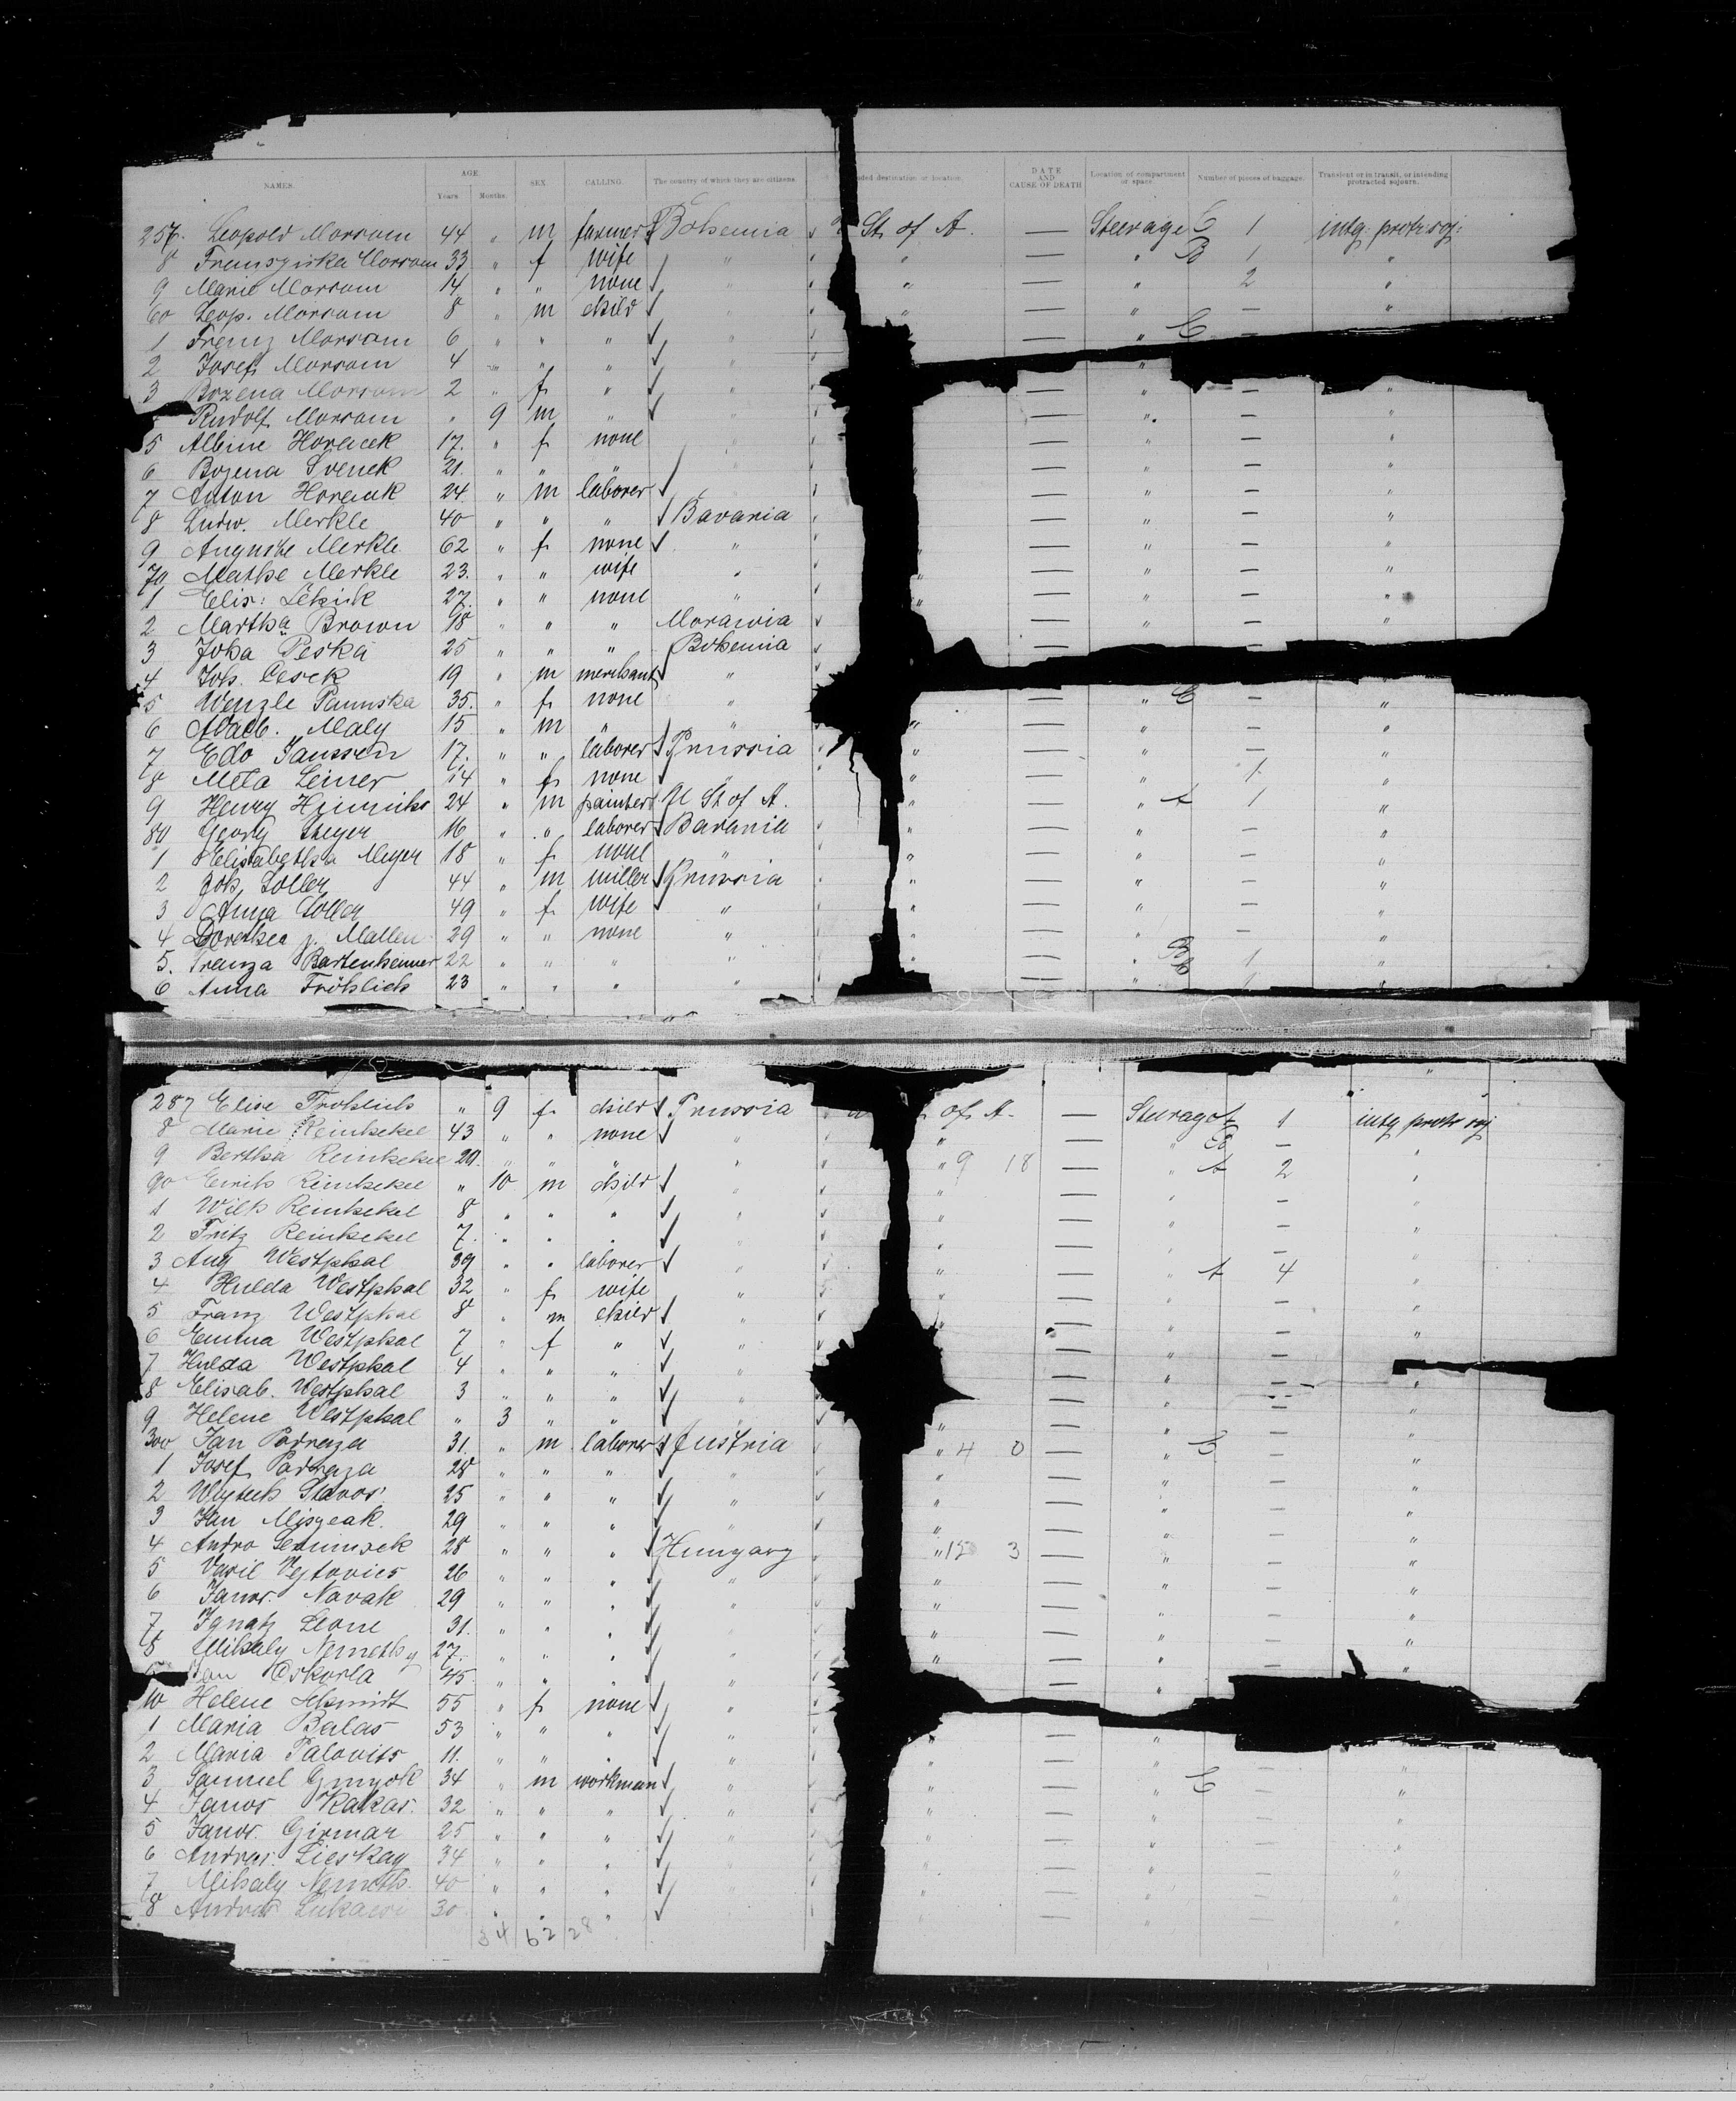 NAMES. AGE. Years. Months. SEX. CALLING. The country of which they are citizens. nded destination or location. DATE AND CAUSE OF DEATH Location of compartment or space. Number of pieces of baggage. Transient or in transit, or intending protracted sojourn.
257. Leopold Morram 44 " m farmer Bohemia St of A. — Steerage C 1 intg: protr soj:
8 Morram 33 " f wife " " — " B 1 "
9 Marie Morram 14 " " none " " — " 2 "
60 Leop. Morram 8 " m child " " — " — "
1 Franz Morram 6 " " " " — " C —
2 Josef Morram 4 " " " " — "
3 Bozena Morram 2 " f " " — " — "
Rudolf Morram " 9 m " " — " — "
5 Albine Horacek 17. " f none " — " — "
6 Bozena Svenek 21. " " " " — " — "
7 Anton Horacek 24 " m laborer " — " — "
8 Ludw. Merkle 40 " " " Bavaria — " — "
9 Auguste Merkle 62 " f none " " — " — "
70 Mathe Merkle 23. " " wife " " — " — "
1 Elis: 27. " " none " " — " — "
2 Martha Brown 18 " " " Morawia — " — "
3 Joha Peska 25 " " " Bohemia
4 Joh. Cesek 19 " m merchant "
5 Wenzle 35. " f none " — " C — "
6 Maly 15 " m " " " — " — "
7 Edo Janssen 17. " " laborer Prussia " — " — "
8 Meta Leiner 14 " f none " " — " 1 "
9 Henry Hinrichs 24 " m painter U St of A. " — " A 1 "
80 Georg 16 " " laborer Bavaria " — " — "
1 Helisabetha Meyer 18 " f none " " — " — "
2 Joh. Loller 44 " m miller Prussia " — " — "
3 Anna Loller 49 " f wife " " — " — "
4 Dorethea v. Mallen 29 " " none " " — " — "
5. Franza Bartenheimer 22 " " " " " — " B 1 "
6 Anna Fröhlich 23 " " " " " — " "
287 Elise Frohlich " 9 f child Prussia of A. — Steerage A 1 intg protr soj
8 Marie Reinkekel 43 " " none " " — " B — "
9 Bertha Reinkekel 20. " " " " " 9 18 — " A 2 "
90 Reinkekel " 10 m child " " — " — "
1 Wilh Reinkekel 8 " " " " " — " — "
2 Fritz Reinkekel 7. " " " " " — " — "
3 Aug Westphal 39 " " laborer " " — " A 4 "
4 Hulda Westphal 32 " f wife " " — " — "
5 Franz Westphal 8 " m child " " — " — "
6 Emma Westphal 7 " f " " — " — "
7 Hulda Westphal 4 " " " " — " — "
8 Elisab. Westphal 3 " " " " — " — "
9 Helene Westphal " 3 " " " " — " — "
300 Jan Padraza 31. " m laborer Austria " 4 0 — " C — "
1 Josef Padraza 28 " " " " " — " — "
2 25 " " " " " — " — "
3 Jan 29 " " " " " — " — "
4 Andro 28 " " " Hungary " 15 3 — " — "
5 Vasil 26 " " " " " — " — "
6 Janos. Novak 29 " " " " " — " — "
7 Ignatz Leone 31. " " " " " — " — "
8 Mihaly Nemethy 27. " " " " " — " — "
Jan Oskorla 45. " " " " — "
10 Helene Schmidt 55 " f none "
1 Maria Balas 53 " " " " " — "
2 Maria Palovits 11. " " " " " — " — "
3 Samuel 34 " m workman " " — " C — "
4 Janos Kakas. 32 " " " " " — " — "
5 Janos. Girmar 25 " " " " " — " — "
6 Andras. Lieskay 34 " " " " " — " — "
7 Mihaly Nemeth. 40 " " " " " — " — "
8 Andras 30 " " " " " — " — "
34 62 28